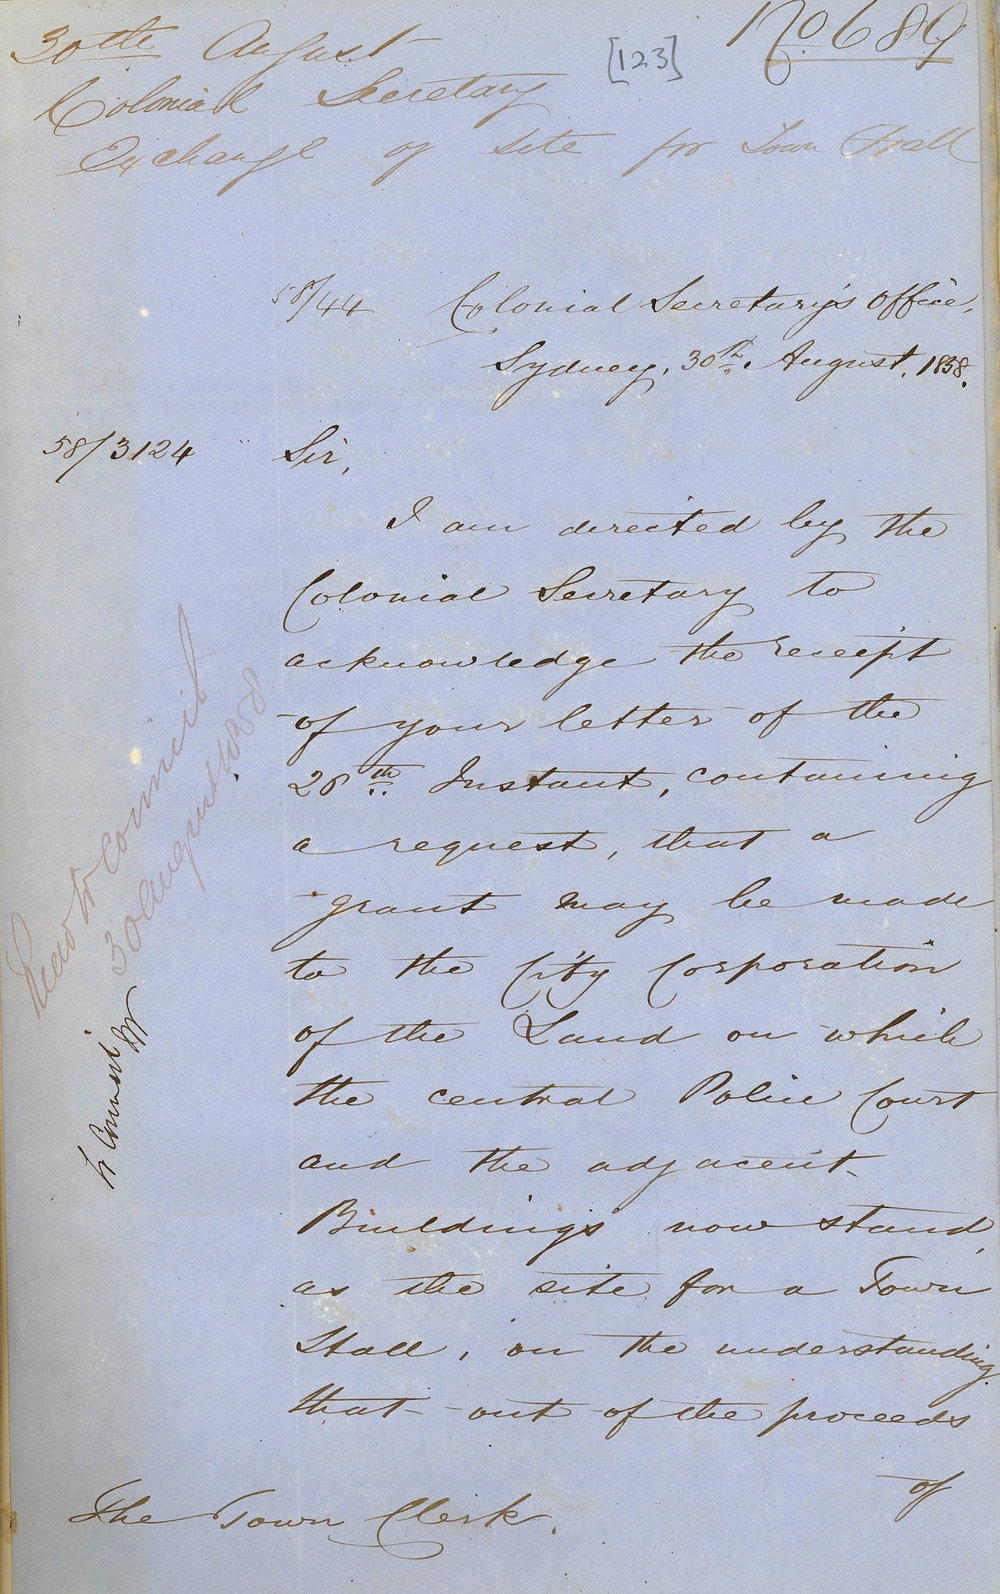 30th August
[123]
No 689
Colonial Secretary
Exchange of site for Town Hall
58/44 Colonial Secretary's Office,
Sydney, 30th August, 1858.
58/3124 Sir,
I am directed by the
Colonial Secretary to
acknowledge the receipt
of your letter of the
28th Instant, containing
a request, that a
grant may be made
to the City Corporation
of the Land on which
the central Police Court
and the adjacent
Buildings now stand,
as the site for a Town
Hall, on the understanding
that out of the proceeds
of
The Town Clerk.
Read to Council
30 August 1858